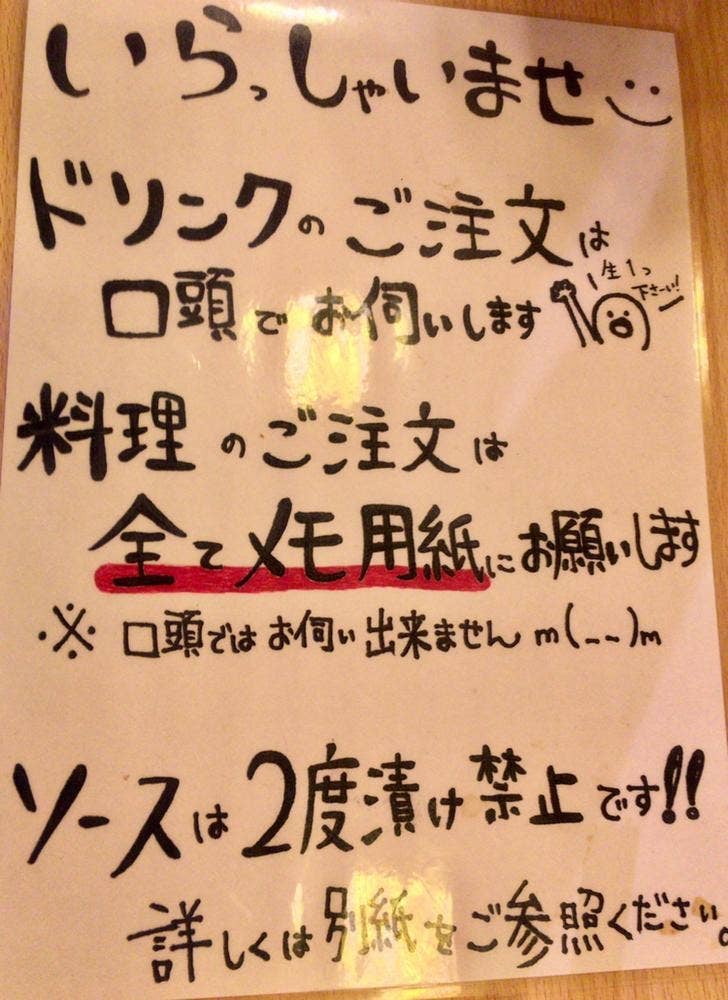 いらっしゃいませ
ドリンクのご注文は
生1つ
下さーい!
口頭でお伺いします
料理のご注文は
全てメモ用紙にお願いします
※ 口頭ではお伺い出来ません m(__)m
ソースは2度漬け禁止です!!
詳しくは別紙をご参照ください。